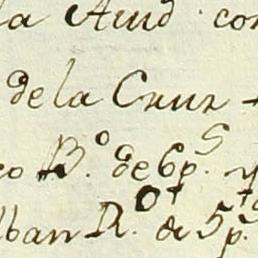 la Aud con
de la Cruz
co B.º de 6 p.s y
lban R.º de 5 p.s